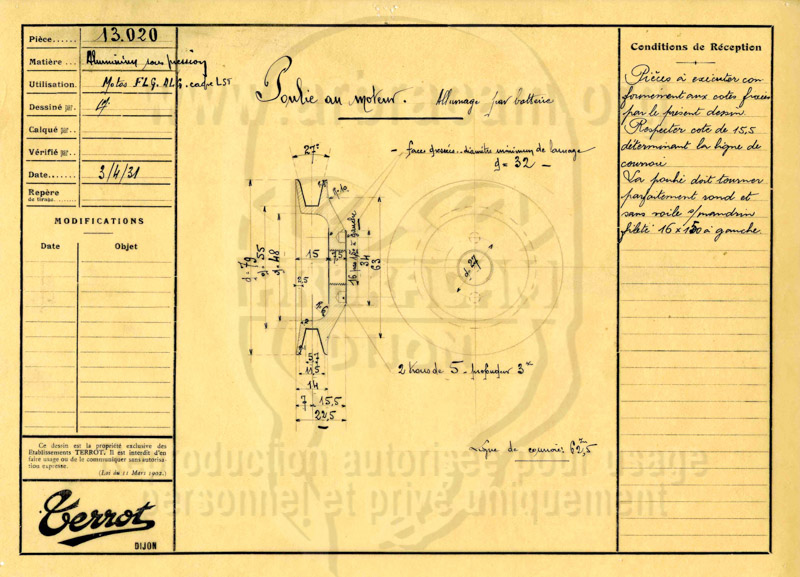 Pièce...... 13.020
Matière ... Aluminium sous pression
Utilisation. Motos FLG. ALG. cadre LST
Dessiné par.
Calqué par..
Vérifié par...
Date....... 3/4/31
Repère
de tirage.
MODIFICATIONS
Date Objet
Ce dessin est la propriété exclusive des
Etablissements TERROT. Il est interdit d'en
faire usage ou de le communiquer sans autorisa-
tion expresse.
(Loi du 11 Mars 1902.)
Terrot
DIJON
Poulie au moteur. Allumage par batterie
- faces dressées.. diamètre minimum de l'alésage
d = 32 -
27°
d = 79
d = 55
d = 48
15
7,5
2,5
16 pas 150 à gauche
34
63
d. 27
11,5
14
7 15,5
22,5
2 trous de 5 - profondeur 3
Ligne de courroie 62,5
Conditions de Réception
Pièces à exécuter con
formément aux cotes fixées
par le présent dessin
Respecter cote de 15,5
déterminant la ligne de
courroie
La poulie doit tourner
parfaitement rond et
sans voile s/mandrin
fileté 16 x 150 à gauche.
DIJON
Reproduction autorisée pour usage
personnel et privé uniquement